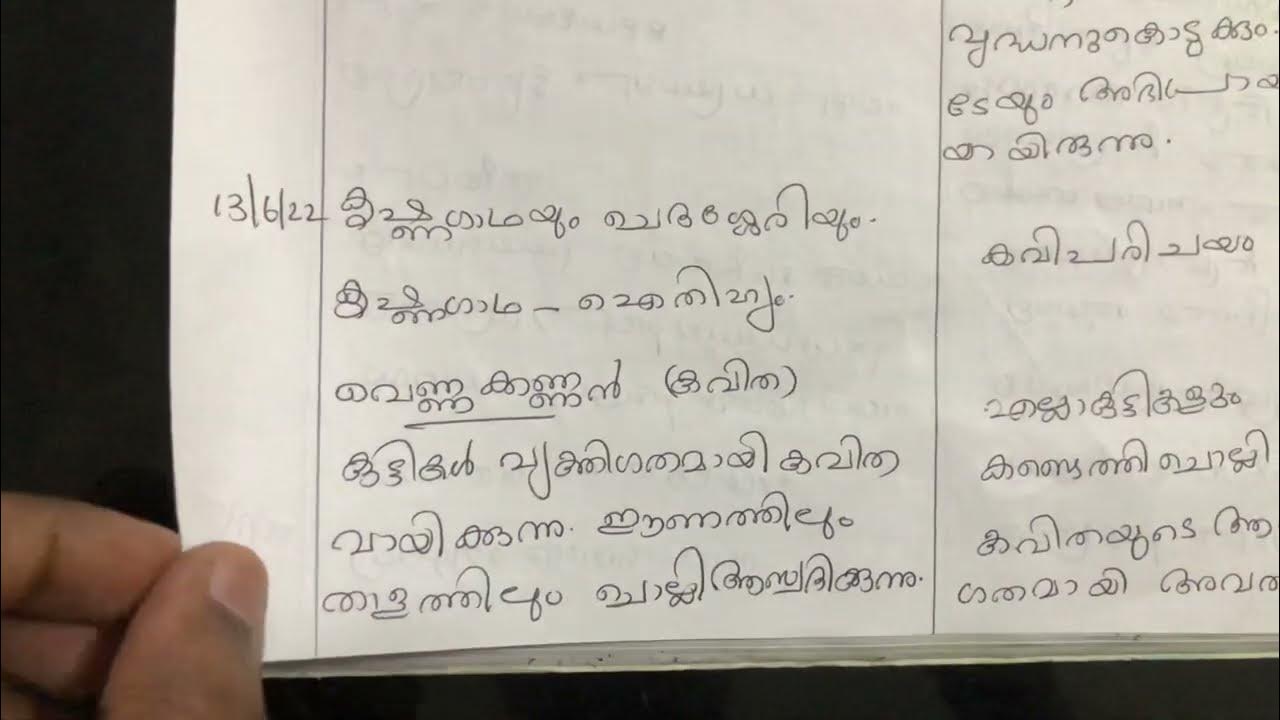 വൃദ്ധനുകൊടുക്കും.
ടേയും അഭിപ്രായ
യായിരുന്നു.
13/6/22 കൃഷ്ണഗാഥയും ചെറുശ്ശേരിയും.
കവിപരിചയം
കൃഷ്ണഗാഥ – ഐതിഹ്യം.
വെണ്ണക്കണ്ണൻ (കവിത)
എല്ലാകുട്ടികളും
കുട്ടികൾ വ്യക്തിഗതമായി കവിത
കണ്ടെത്തി ചൊല്ലി
വായിക്കുന്നു. ഈണത്തിലും
കവിതയുടെ ആ
താളത്തിലും ചൊല്ലി ആസ്വദിക്കുന്നു.
ഗതമായി അവത